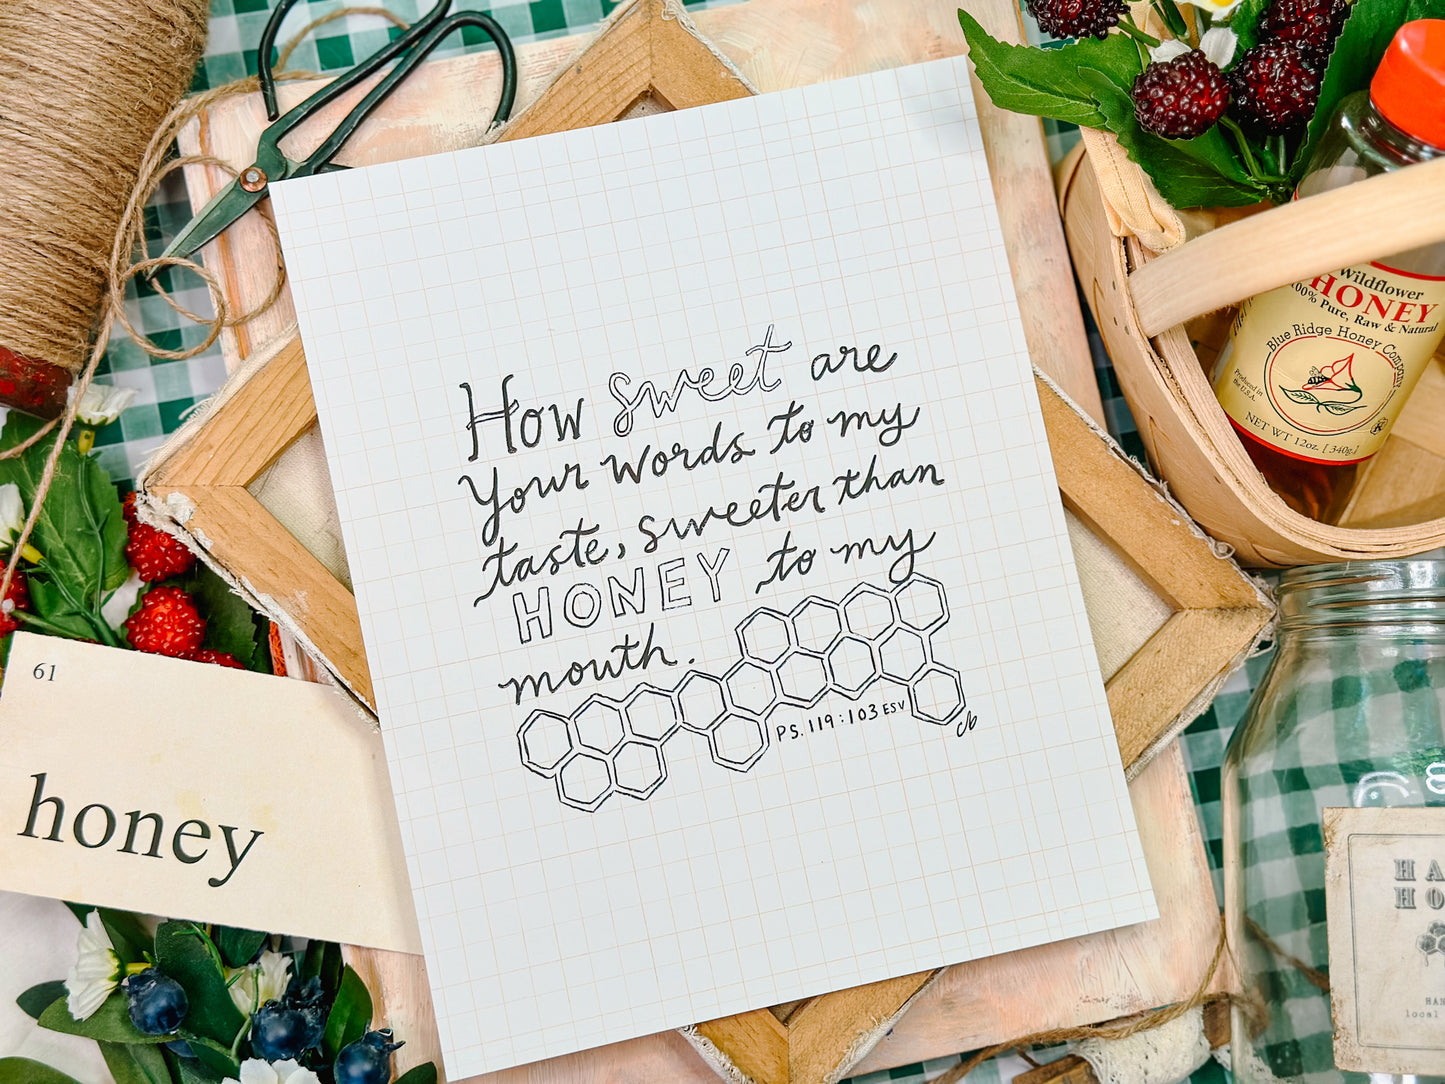 How sweet are
Your words to my
taste, sweeter than
HONEY to my
mouth.
PS. 119:103 ESV
cb
61
honey
Wildflower
HONEY
100% Pure, Raw & Natural
Blue Ridge Honey Company
Produced in
the U.S.A.
NET WT 12oz. [340g.]
K
HA
HO
HAN
local